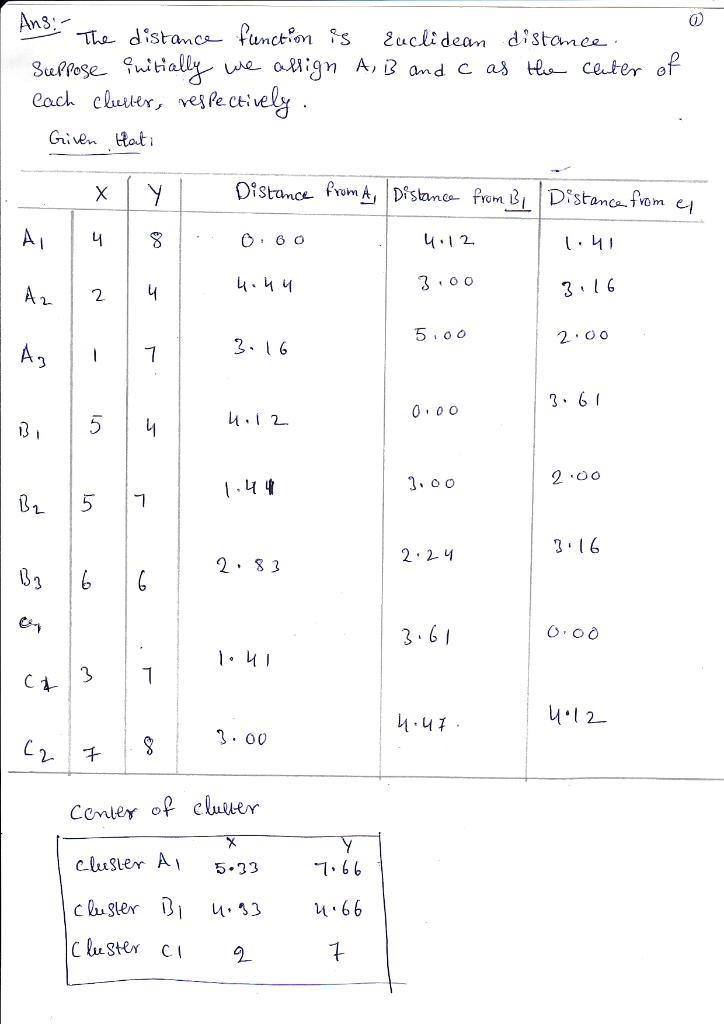 ①
Ans:-
The distance function is Euclidean distance.
Suppose initially we assign A, B and C as the center of
each cluster, respectively.
Given that:
X Y Distance from A1 Distance from B1 Distance from C1
A1 4 8 0.00 4.12 1.41
A2 2 4 4.44 3.00 3.16
A3 1 7 3.16 5.00 2.00
B1 5 4 4.12 0.00 3.61
B2 5 7 1.44 3.00 2.00
B3 6 6 2.83 2.24 3.16
C1 3 7 1.41 3.61 0.00
C2 7 8 3.00 4.47 4.12
Center of cluster
X Y
Cluster A1 5.33 7.66
Cluster B1 4.33 4.66
Cluster C1 2 7